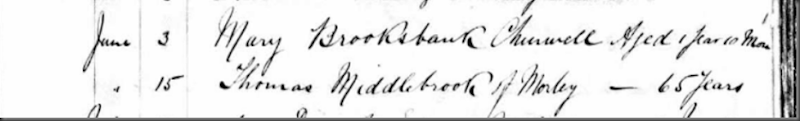 June 3 Mary Brooksbank Churwell Aged 1 Year 10 Mon
" 15 Thomas Middlebrook of Morley — 65 Years